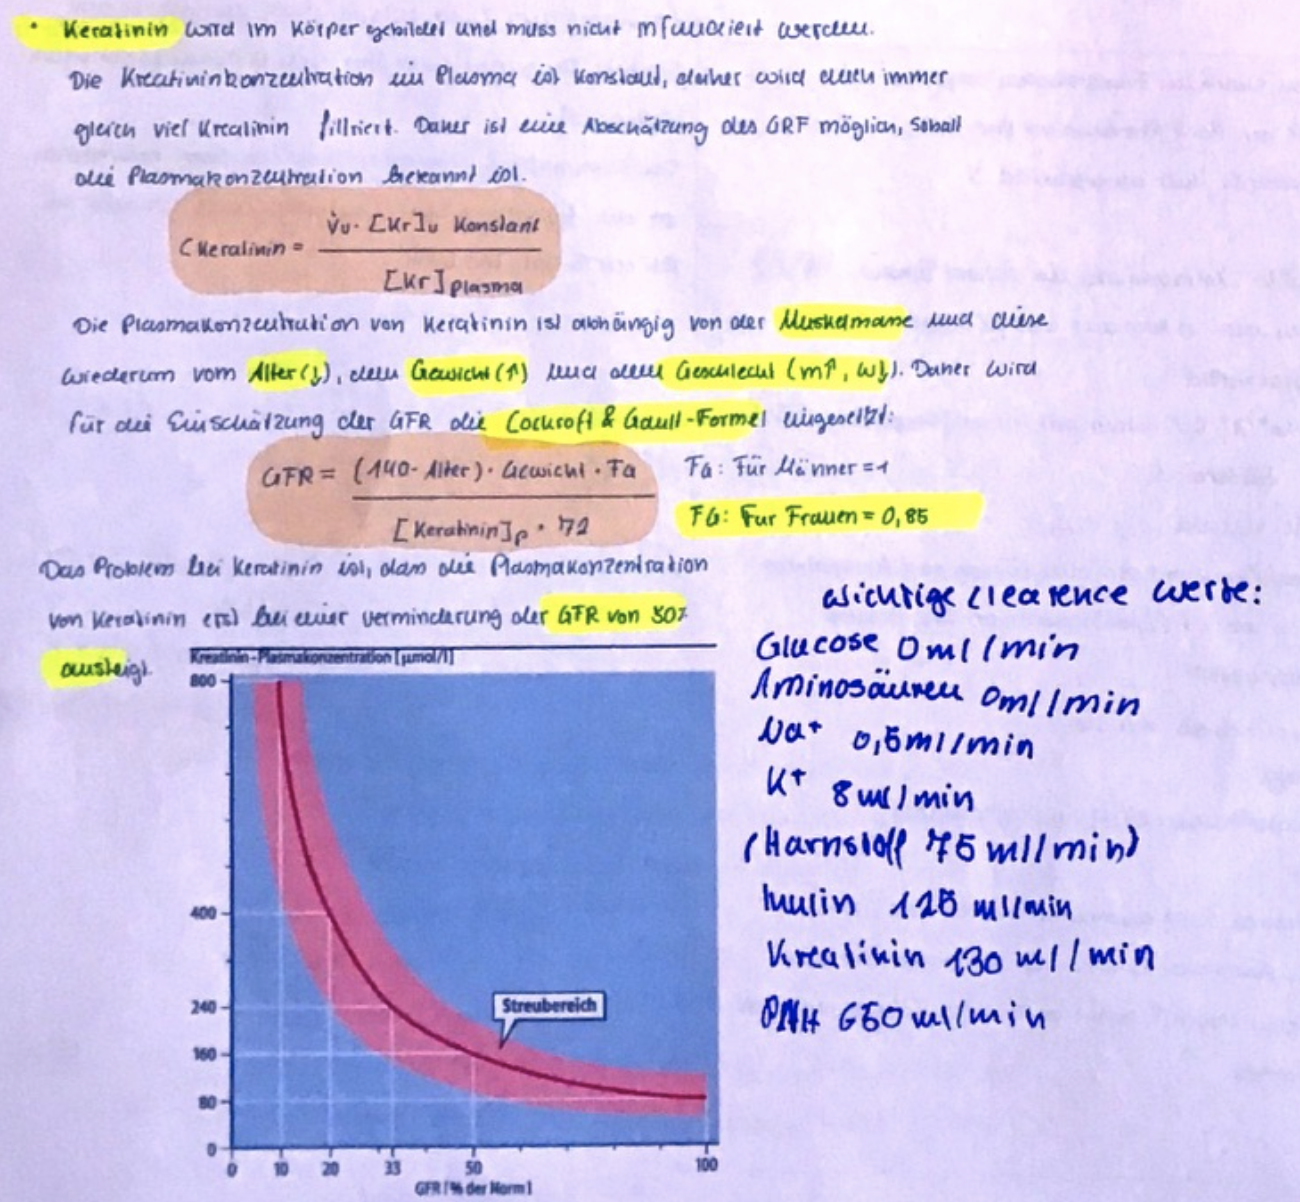 • Keratinin wird im Körper gebildet und muss nicht infundiert werden.
Die Kreatininkonzentration im Plasma ist konstant, daher wird auch immer
gleich viel Kreatinin filtriert. Daher ist eine Abschätzung des GRF möglich, sobald
die Plasmakonzentration bekannt ist.
C Keratinin = V̇u · [Kr]u Konstant
[Kr] Plasma
Die Plasmakonzentration von Keratinin ist abhängig von der Muskelmasse und diese
wiederum vom Alter (↓), dem Gewicht (↑) und dem Geschlecht (m↑, w↓). Daher wird
für die Einschätzung der GFR die Cockroft & Gault-Formel eingesetzt:
GFR = (140 - Alter) · Gewicht · Fa Fa: Für Männer = 1
[Keratinin]p · 72 FG: Für Frauen = 0,85
Das Problem bei Keratinin ist, dass die Plasmakonzentration
von Keratinin erst bei einer verminderung der GFR von 50%
ansteigt.
Kreatinin-Plasmakonzentration [µmol/l]
800
400
240
160
80
0
Streubereich
0 10 20 33 50 100
GFR [% der Norm]
wichtige Clearence werte:
Glucose 0 ml/min
Aminosäuren 0ml/min
Na+ 0,5ml/min
K+ 8 ml/min
(Harnstoff 75 ml/min)
Inulin 125 ml/min
Kreatinin 130 ml/min
PAH 650 ml/min